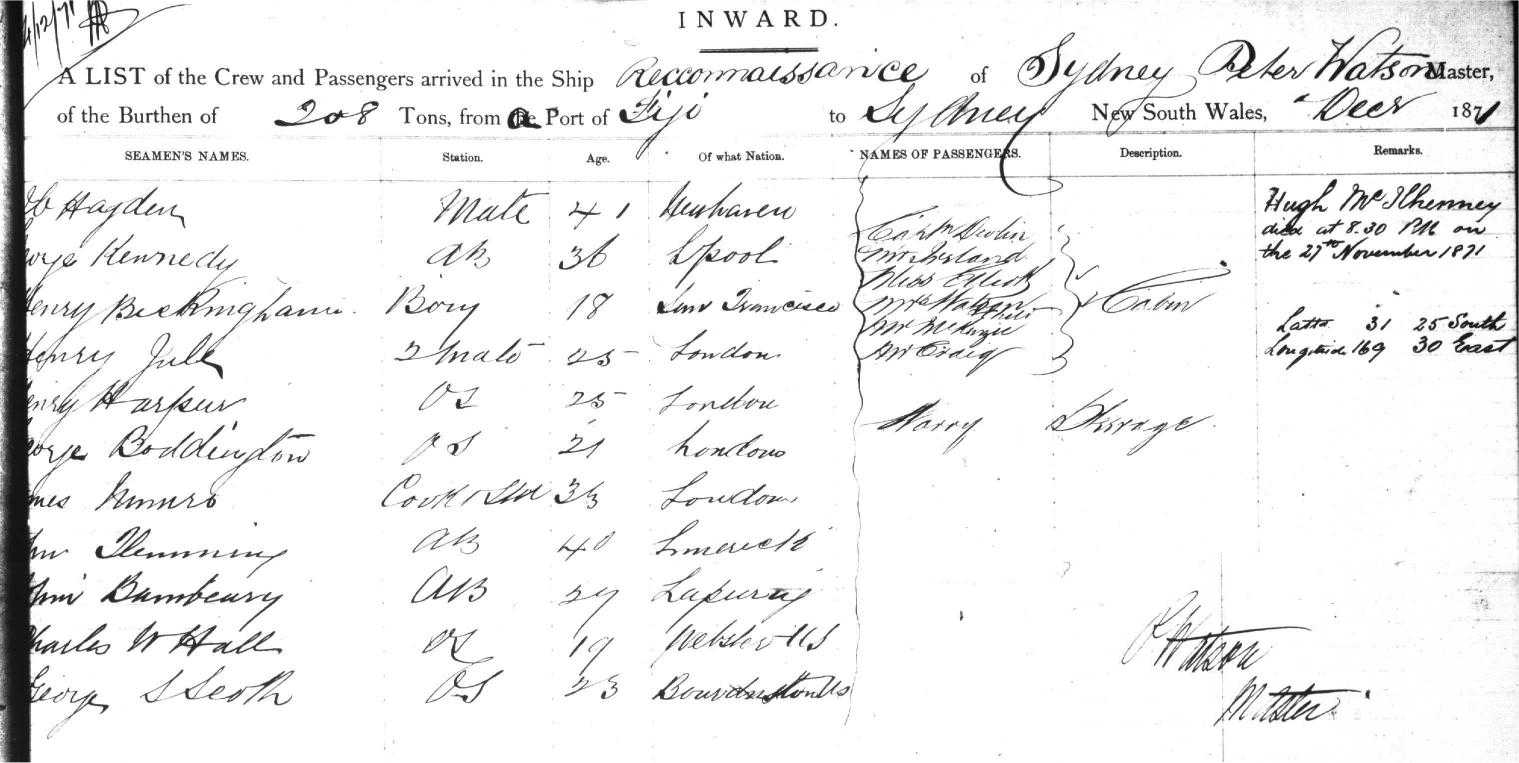 4/12/71
INWARD.
A LIST of the Crew and Passengers arrived in the Ship Recconnaissance of Sydney Peter Watson Master,
of the Burthen of 208 Tons, from a Port of Fiji to Sydney New South Wales, Decr 1871
SEAMEN'S NAMES. Station. Age. Of what Nation. NAMES OF PASSENGERS. Description. Remarks.
Hayden Mate 41 Newhaven
Kennedy AB 36 Lpool
Henry Beckingham Boy 18 San Francisco
Henry Jule 2 Mate 25 London
Henry Harpur OS 25 London
Boddington OS 21 London
Munro Cook & Std 33 London
Flemming AB 40 Limerick
Bambeury AB 29
Charles W Hall OS 19 Webster US
George S Scoth OS 23
Capt Devlin
Mr Ireland
Miss Elliott
Mrs Watson
Mr McKenzie
Mr Craig
Cabin
Harry Steerage
Hugh McIlhenney
died at 8.30 PM on
the 27th November 1871
Latte 31 25 South
Longitude 169 30 East
P Watson
Master